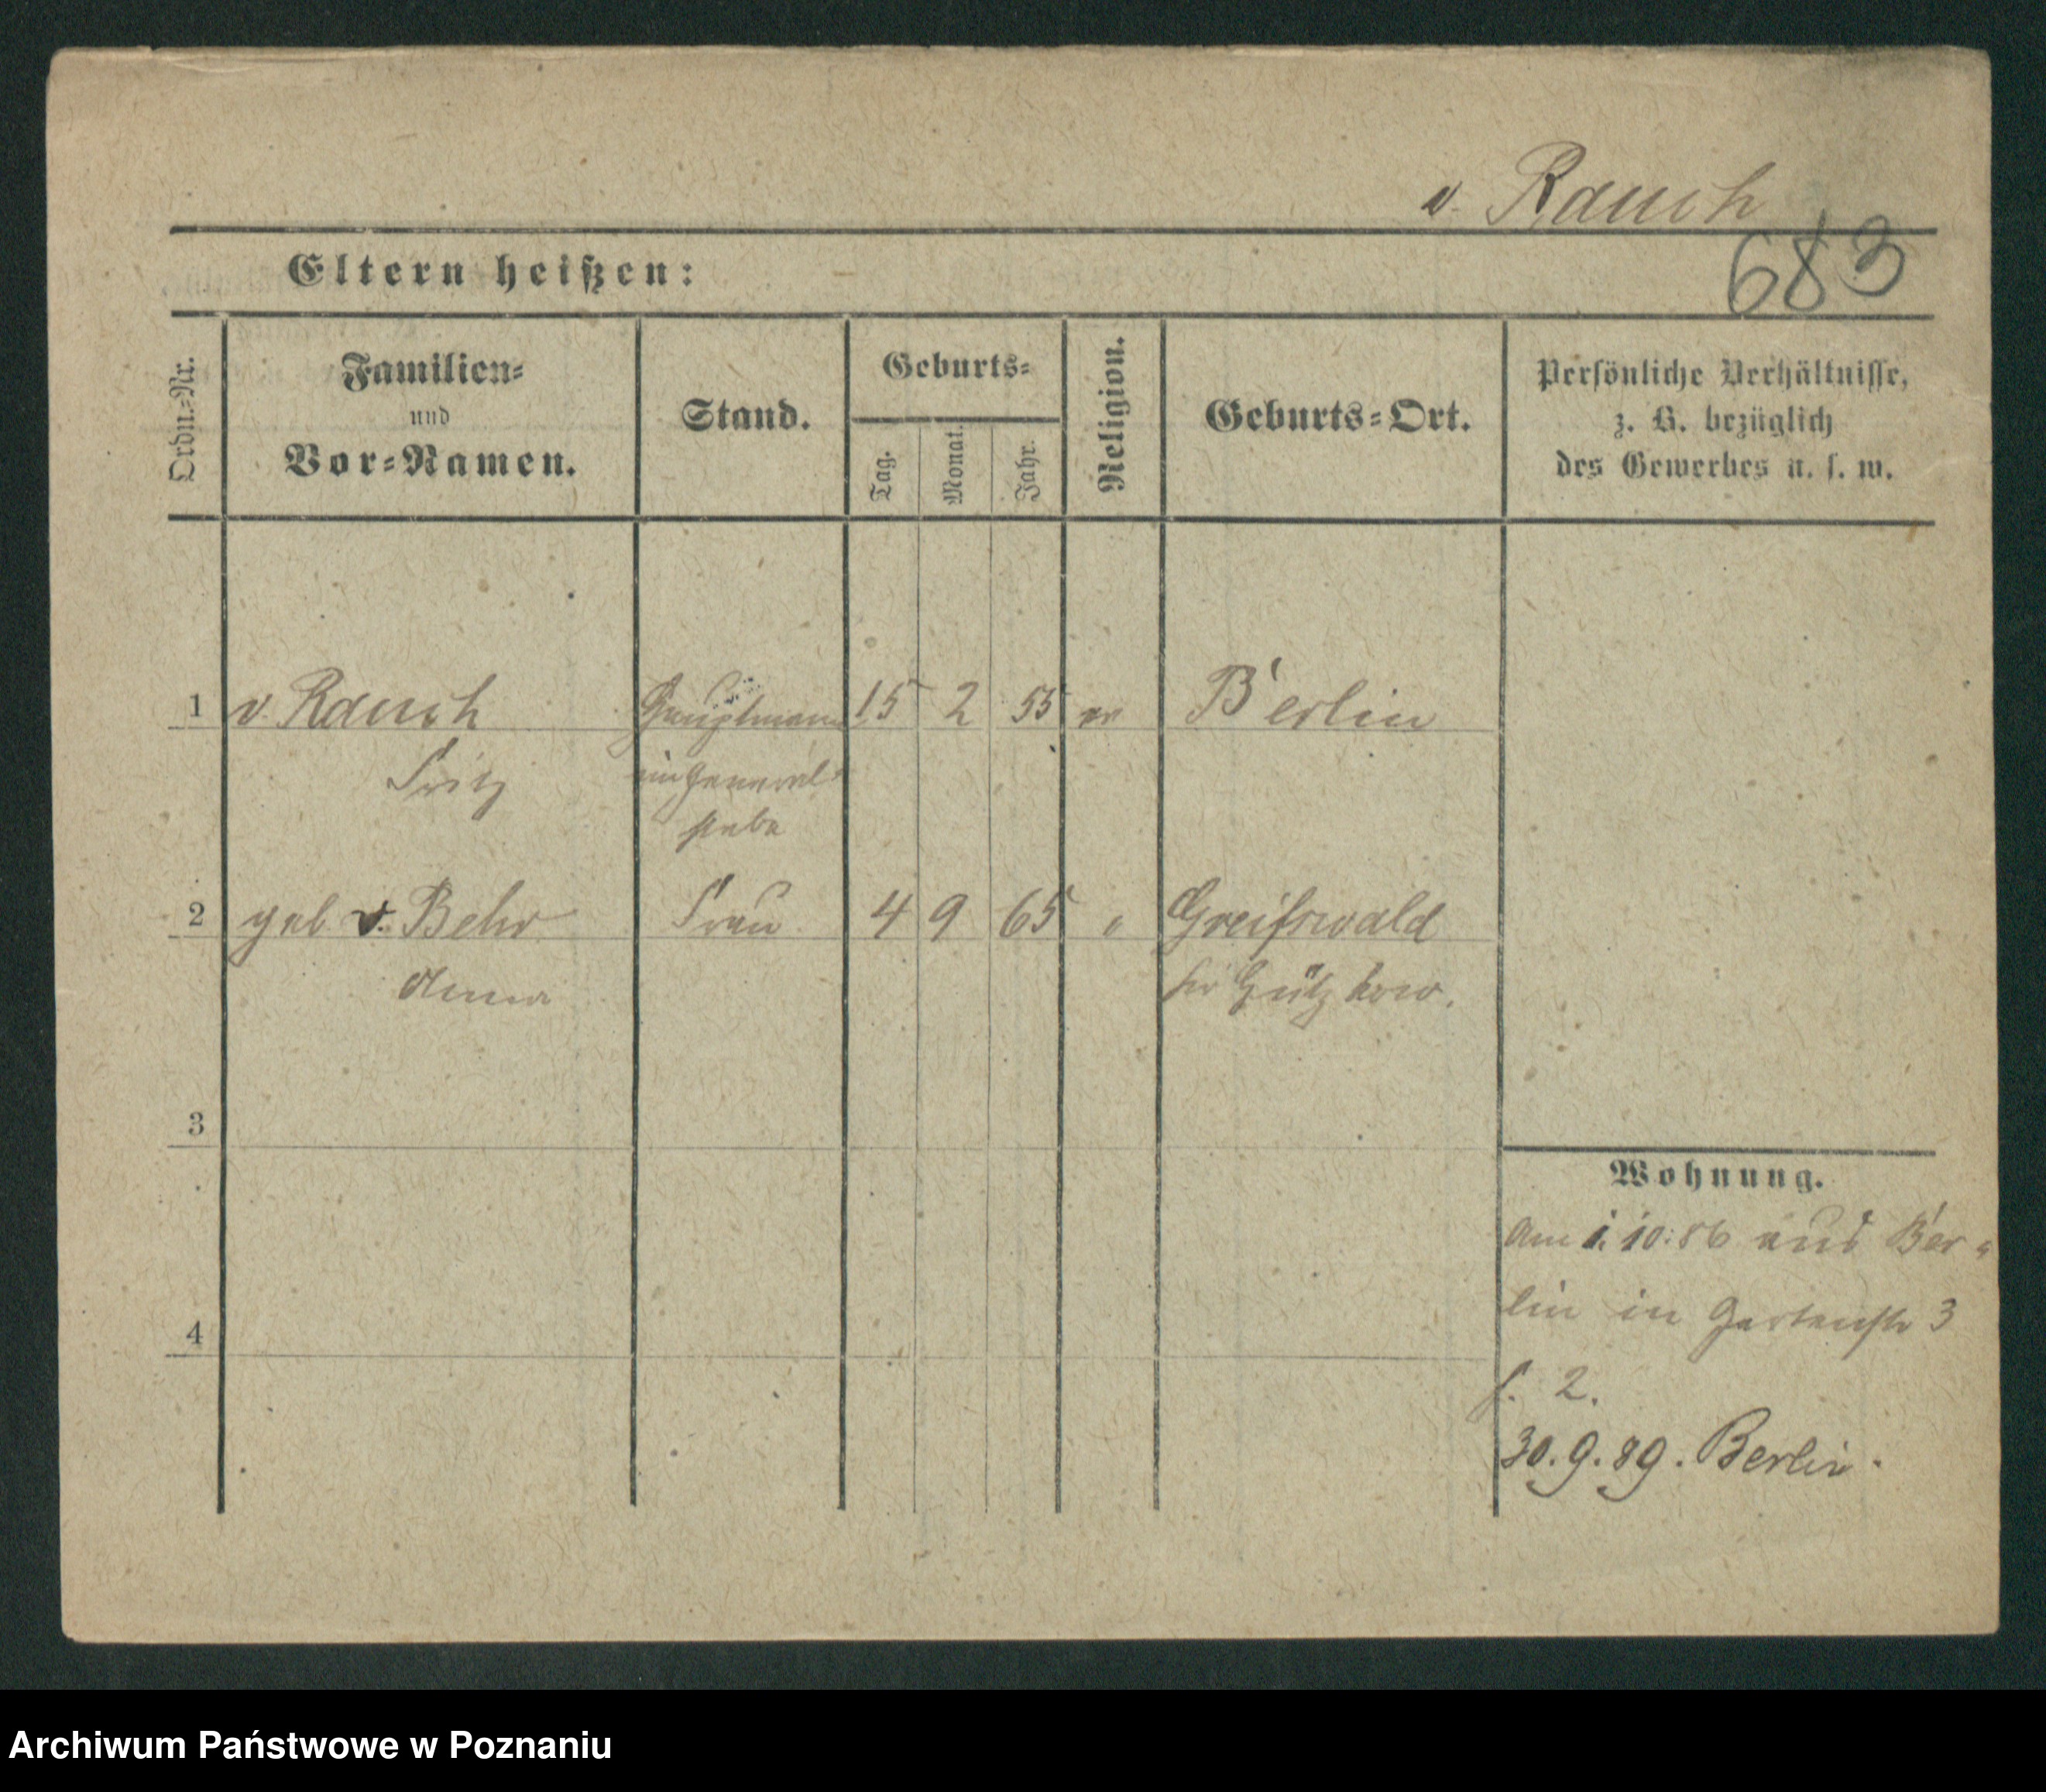 v. Rauch
683
Eltern heißen:
Ordn.-Nr.
Familien-
und
Vor-Namen.
Stand.
Geburts-
Tag.
Monat.
Jahr.
Religion.
Geburts-Ort.
Persönliche Verhältnisse,
z. B. bezüglich
des Gewerbes u. s. w.
1 v. Rauch Hauptmann 15 2 55 ev Berlin
Fritz im General-
stabe
2 geb v. Behr Frau 4 9 65 " Greifswald
Anna Gützkow.
3
4
Wohnung.
Am 1. 10. 86 aus Ber-
lin in Gartenstr 3
2.
30. 9. 89. Berlin.
Archiwum Państwowe w Poznaniu